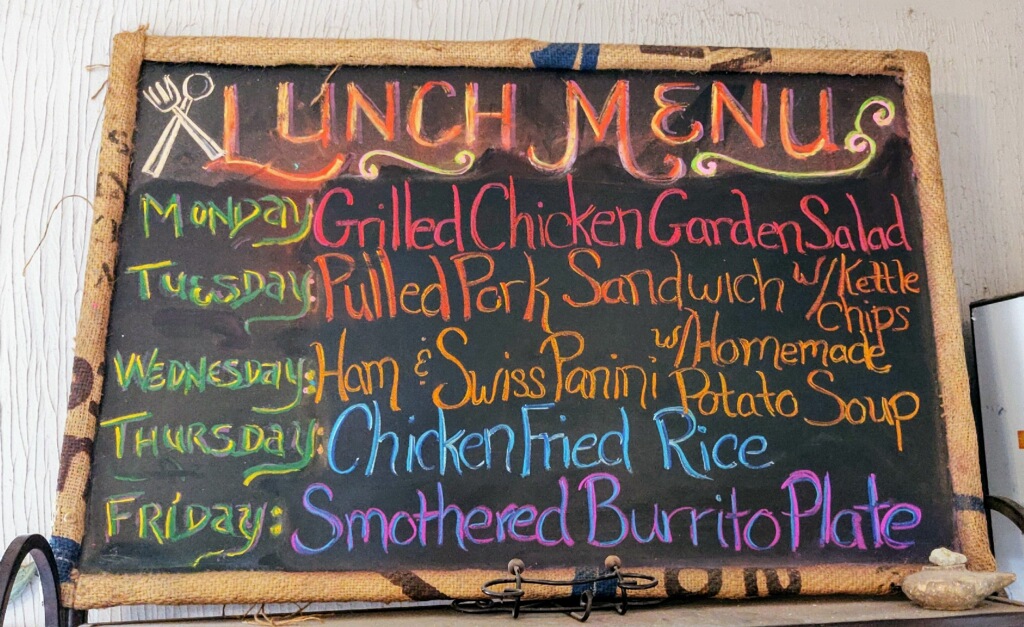 LUNCH MENU
MONDAY: Grilled Chicken Garden Salad
TUESDAY: Pulled Pork Sandwich w/Kettle
Chips
WEDNESDAY: Ham & Swiss Panini w/Homemade
Potato Soup
THURSDAY: Chicken Fried Rice
FRIDAY: Smothered Burrito Plate